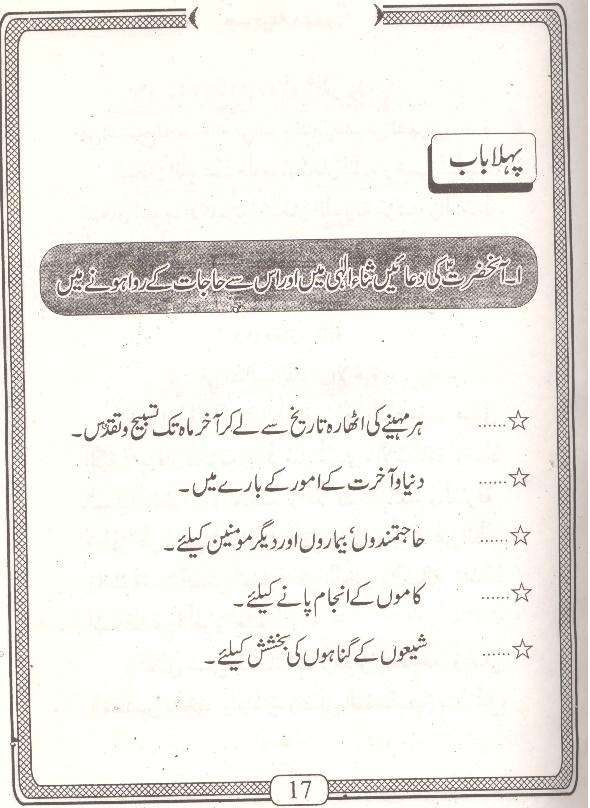 پہلا باب
۱۔ آنحضرتؑ کی دعائیں ثناء الٰہی میں اور اس سے حاجات کے روا ہونے میں
☆...... ہر مہینے کی اٹھارہ تاریخ سے لے کر آخر ماہ تک تسبیح و تقدس۔
☆...... دنیا و آخرت کے امور کے بارے میں۔
☆...... حاجتمندوں' بیماروں اور دیگر مومنین کیلئے۔
☆...... کاموں کے انجام پانے کیلئے۔
☆...... شیعوں کے گناہوں کی بخشش کیلئے۔
17